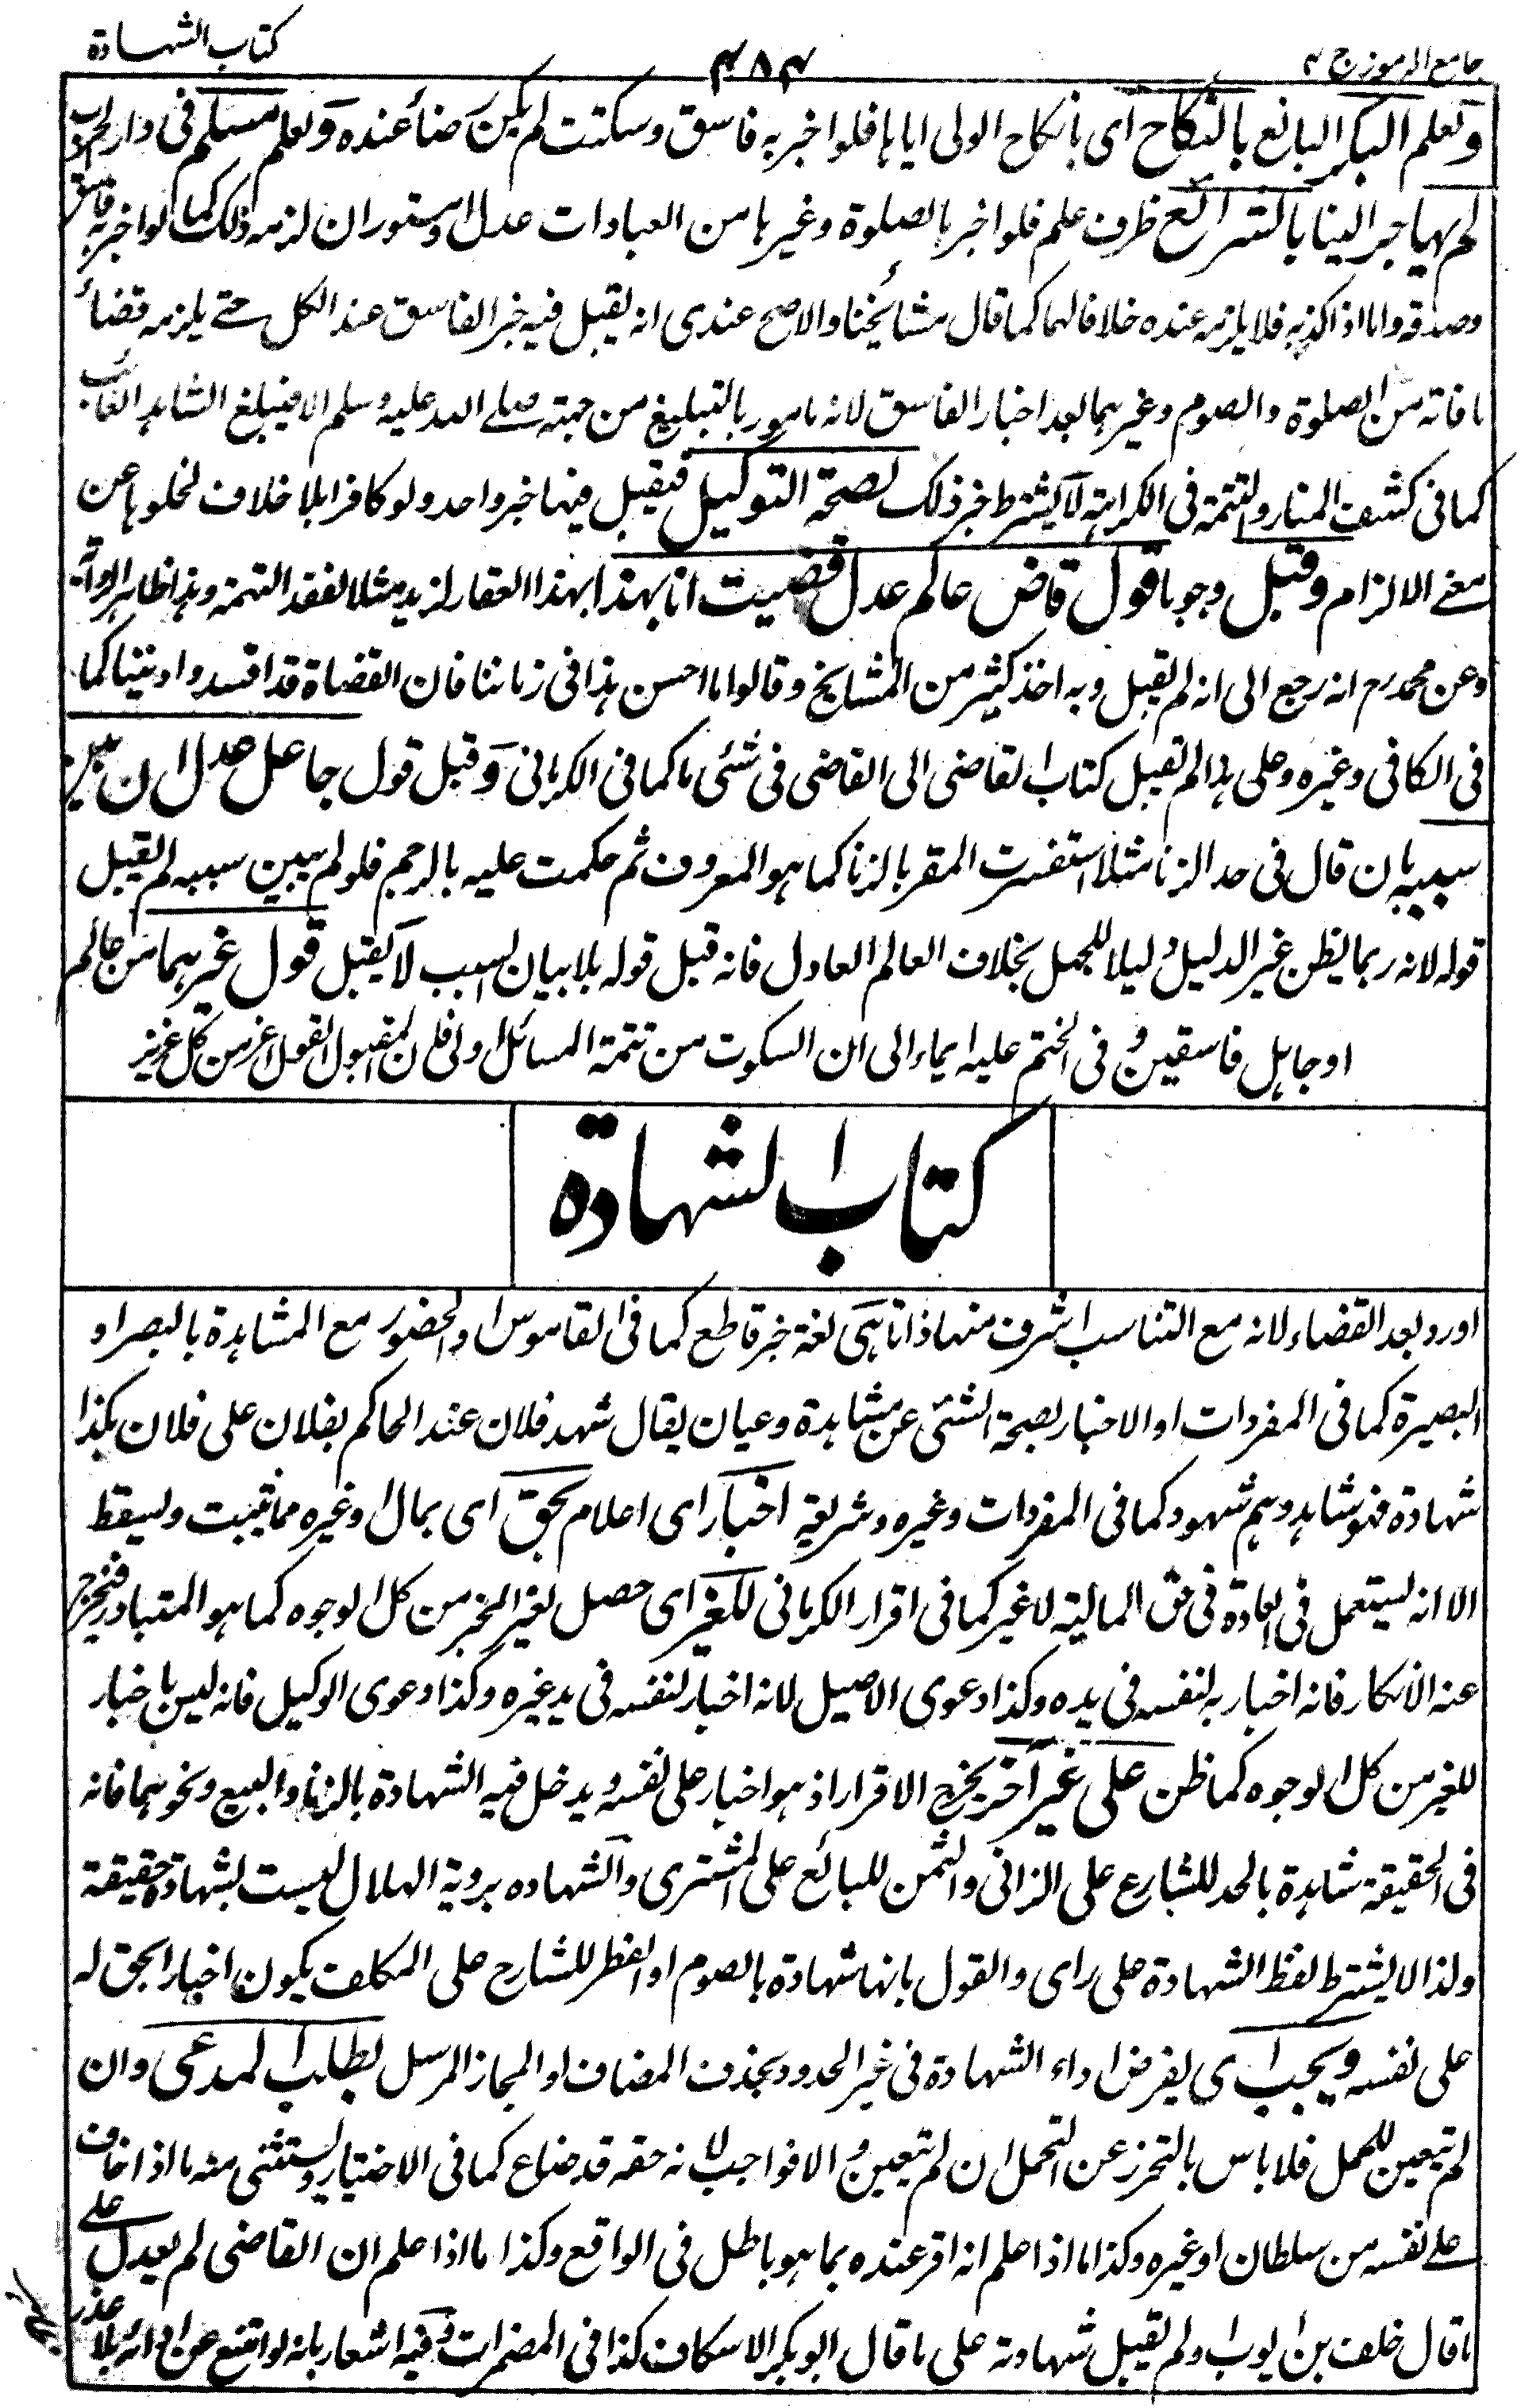 جامع الرموز ج ٢
٤٨٤
كتاب الشهادة
ولعلم البكر البالغ بالنكاح اى بانكاح الولى اياها فلو اخبر به فاسق وسكتت لم يكن رضأ عنده ولعلم مسلم فى دار الحرب
لم يهاجر الينا بالشرائع ظرف علم فلو اخبر بالصلوة وغيرها من العبادات عدل او مستوران لزمه ذلك كما لو اخبر به فاسق
وصدقه واما اذا كذبه فلا يلزمه عنده خلافا لهما كما قال مشائخنا والاصح عندى انه يقبل فيه خبر الفاسق عند الكل حتے يلزمه قضأ
ما فاته من الصلوة والصوم وغيرهما بعد اخبار الفاسق لانه مامور بالتبليغ من جهته صلے الله عليه وسلم الا فيبلغ الشاهد الغائب
كما فى كشف المنار والتتمة فى الكراهة لا يشترط خبر ذلك لصحة التوكيل فيقبل فيها خبر واحد ولو كافرا بلا خلاف لخلوها عن
معنے الالزام وقبل وجوبا قول قاض عالم عدل قضيت انا بهذا بهذا العقار لزيد مثلا لفقد التهمة وهذا ظاهر الرواية
وعن محمد رح انه رجع الى انه لم يقبل وبه اخذ كثير من المشايخ وقالوا ما احسن هذا فى زماننا فان القضاة قد افسدوا ديننا كما
فى الكافى وغيره وعلى هذا لم يقبل كتاب القاضى الى القاضى فى شئى ما كما فى الكرمانى وقبل قول جاهل عدل ان بين
سببه بان قال فى حد الزنا مثلا استفسرت المقر بالزنا كما هو المعروف ثم حكمت عليه بالرجم فلو لم يبين سببه لم يقبل
قوله لانه ربما يظن غير الدليل دليلا للجهل بخلاف العالم العادل فانه قبل قوله بلا بيان السبب لا يقبل قول غيرهما من عالم
او جاهل فاسقين و فى الختم عليه ايماء الى ان السكوت من تتمة المسائل اولى فلان المقبول القول اعز من كل عزيز
كتاب الشهادة
اورد بعد القضاء لانه مع التناسب اشرف منها ذاتا هى لغة خبر قاطع كما فى القاموس او الحضور مع المشاهدة بالبصر او
البصيرة كما فى المفردات او الاخبار بصحة الشئى عن مشاهدة وعيان يقال شهد فلان عند الحاكم بفلان على فلان بكذا
شهادة فهو شاهد وهم شهود كما فى المفردات وغيره وشريعة اخبار اى اعلام بحق اى بمال او غيره مما يثبت ويسقط
الا انه يستعمل فى العادة فى حق المالية لا غير كما فى اقرار الكرمانى للغير اى حصل لغير المخبر من كل الوجوه كما هو المتبادر فيخرج
عنه الانكار فانه اخبار به لنفسه فى يده وكذا دعوى الاصيل لانه اخبار لنفسه فى يد غيره وكذا دعوى الوكيل فانه ليس باخبار
للغير من كل الوجوه كما ظن على غير آخر يخرج الاقرار اذ هو اخبار على نفسه ويدخل فيه الشهادة بالزنا والبيع ونحوهما فانه
فى الحقيقة شاهدة بالحد للشارع على الزانى والثمن للبائع على المشترى والشهاده بروية الهلال ليست بشهادة حقيقة
ولذا لا يشترط لفظ الشهادة على راى والقول بانها شهادة بالصوم او الفطر للشارع على المكلف يكون اخبارا بحق له
على نفسه ويجب اى يفرض اداء الشهادة فى غير الحدود بحذف المضاف او المجاز المرسل بطلب المدعى وان
لم يتعين للحمل فلا باس بالتحرز عن التحمل ان لم يتعين و الا فواجب لانه حقه قد ضاع كما فى الاختيار ويستثنى منه ما اذا خاف
علے نفسه من سلطان او غيره وكذا ما اذا علم انه اقر عنده بما هو باطل فى الواقع وكذا ما اذا علم ان القاضى لم يعدل علے
ما قال خلف بن ايوب او لم يقبل شهادته على ما قال ابو بكر الاسكاف كذا فى المضمرات وفيه اشعار بانه لو امتنع عن ادائه بلا عذر